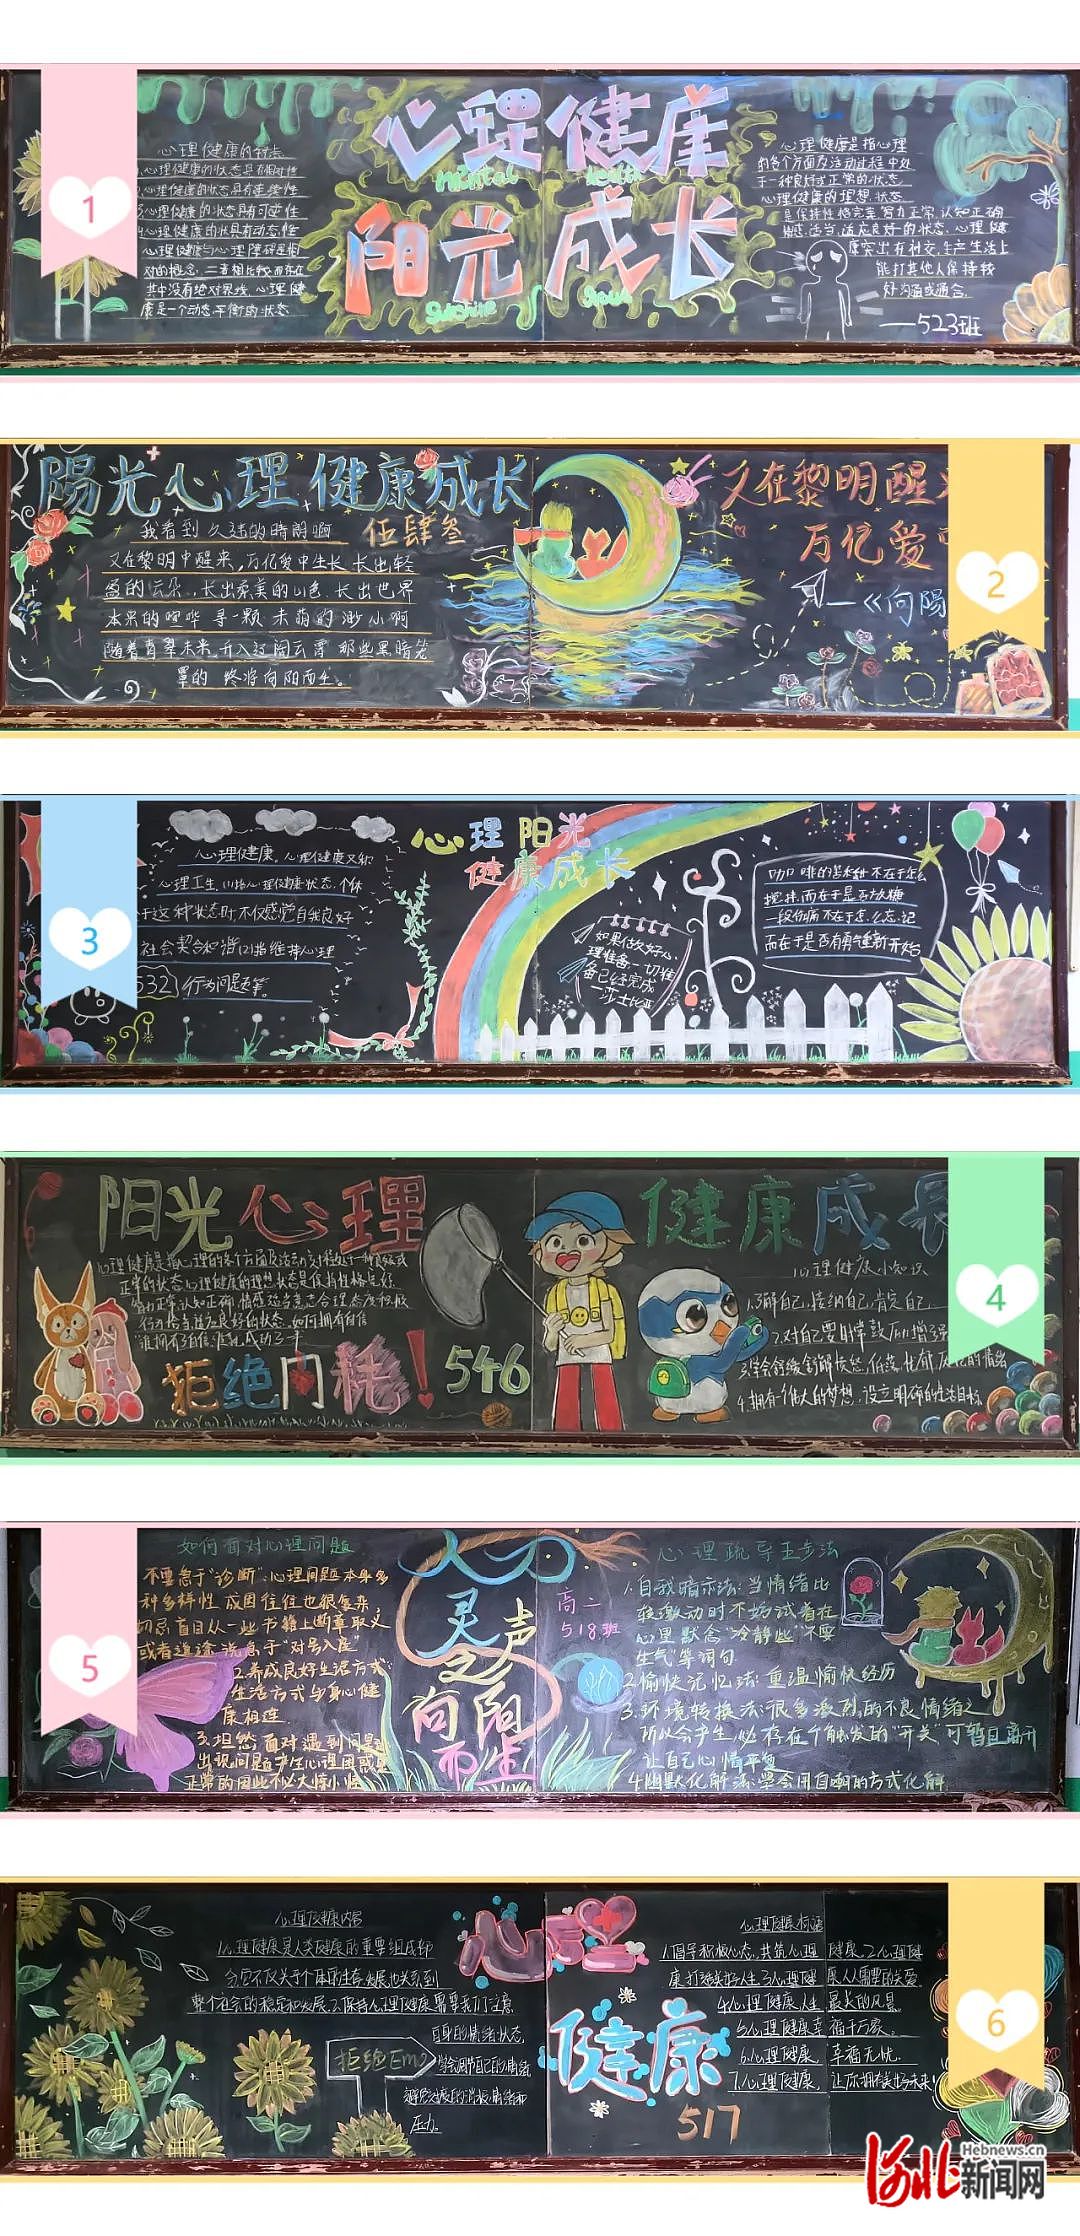 1
心理健康
mental
health
阳光成长
sunshine
心理健康的特点
心理健康的状态具有相对性
心理健康的状态具有连续性
3.心理健康的状态具有可逆性
心理健康的状具有动态性
心理健康与心理障碍是相
对的概念,二者相比较而存在
其中没有绝对界线,心理健
康是一个动态平衡的状态
心理健康是指心理
的各个方面及活动过程中处
于一种良好或正常的状态
心理健康的理想状态
是保持性格完美,智力正常,认知正确
情感适当,适应良好的状态,心理健
康突出在社交,生产生活上
能打其他人保持较
好沟通或适合
——523班
2
陽光心理健康成长
我看到久违的時朗啊
伍肆叁
又在黎明中醒来,万亿爱中生长长出轻
盈的云朵,长出柔美的山色,长出世界
本来的喧哗,寻一颗未萌的渺小啊
随着青翠未来,升入辽阔云霄那些黑暗笼
罩的终将向阳而生。
又在黎明醒
万亿爱
—《向陽
3
心理阳光
健康成长
心理健康,心理健康又称
心理卫生,(1)指心理健康状态,个体
于这种状态时,不仅感觉自我良好
社会契合和谐(2)指维持心理
532
行为问题等。
如果做好心
理准备,一切准
备已经完成
—莎士比亚
咖啡的苦和甜不在于怎么
搅拌,而在于是否放糖
一段伤痛不在于怎么忘记
而在于是否有勇气重新开始
4
阳光心理
健康成长
心理健康是指心理的各个方面及活动过程处于一种良好或
正常的状态,心理健康的理想状态是保持性格完好
智力正常,认知正确,情感适当,意志合理,态度积极
行为恰当,适应良好的状态,如何拥有自信
谁拥有自信,谁就成功了一半
拒绝内耗!
546
心理健康小知识
1.了解自己,接纳自己,肯定自己
2.对自己要时常鼓励,增强
4.拥有一个伟大的梦想,设立明确的生活目标
5
如何面对心理问题
不要急于“诊断”.心理问题本身多
种多样性成因往往也很复杂,
切忌盲目从一些书籍上断章取义
或者道途说急于“对号入座”
2.养成良好生活方式
生活方式与身心健
康相连
3.坦然面对遇到问题
出现问题产生心理困惑是
正常的因此不必大惊小怪
心灵之声
向阳而生
高二
518班
心理疏导五步法
1.自我暗示法:当情绪比
较激动时不妨试着在
心里默念“冷静些”“不要
生气”等词句
2.愉快记忆法:重温愉快经历
3.环境转换法:很多激烈的不良情绪之
所以会产生,必存在个触发的“开关”可暂且离开
让自己心情平复
4.幽默化解法:学会用自嘲的方式化解
6
心理健康
517
心理健康内容
1.心理健康是人类健康的重要组成部
分,它不仅关乎个体的生存发展,也关系到
整个社会的稳定和发展.2.保持心理健康需要我们注意
自身的情绪状态,
学会调节自己的情绪
压力。
拒绝Emo
心理健康标语
1.倡导积极心态,共筑心理健康.2.心理健
康,打造美好人生.3.心理健康人人需要的关爱
4.心理健康,人生最美的风景.
5.心理健康幸福千万家.
6.心理健康,幸福无忧.
7.心理健康,让你拥有美好未来!
河北新闻网
Hebnews.cn